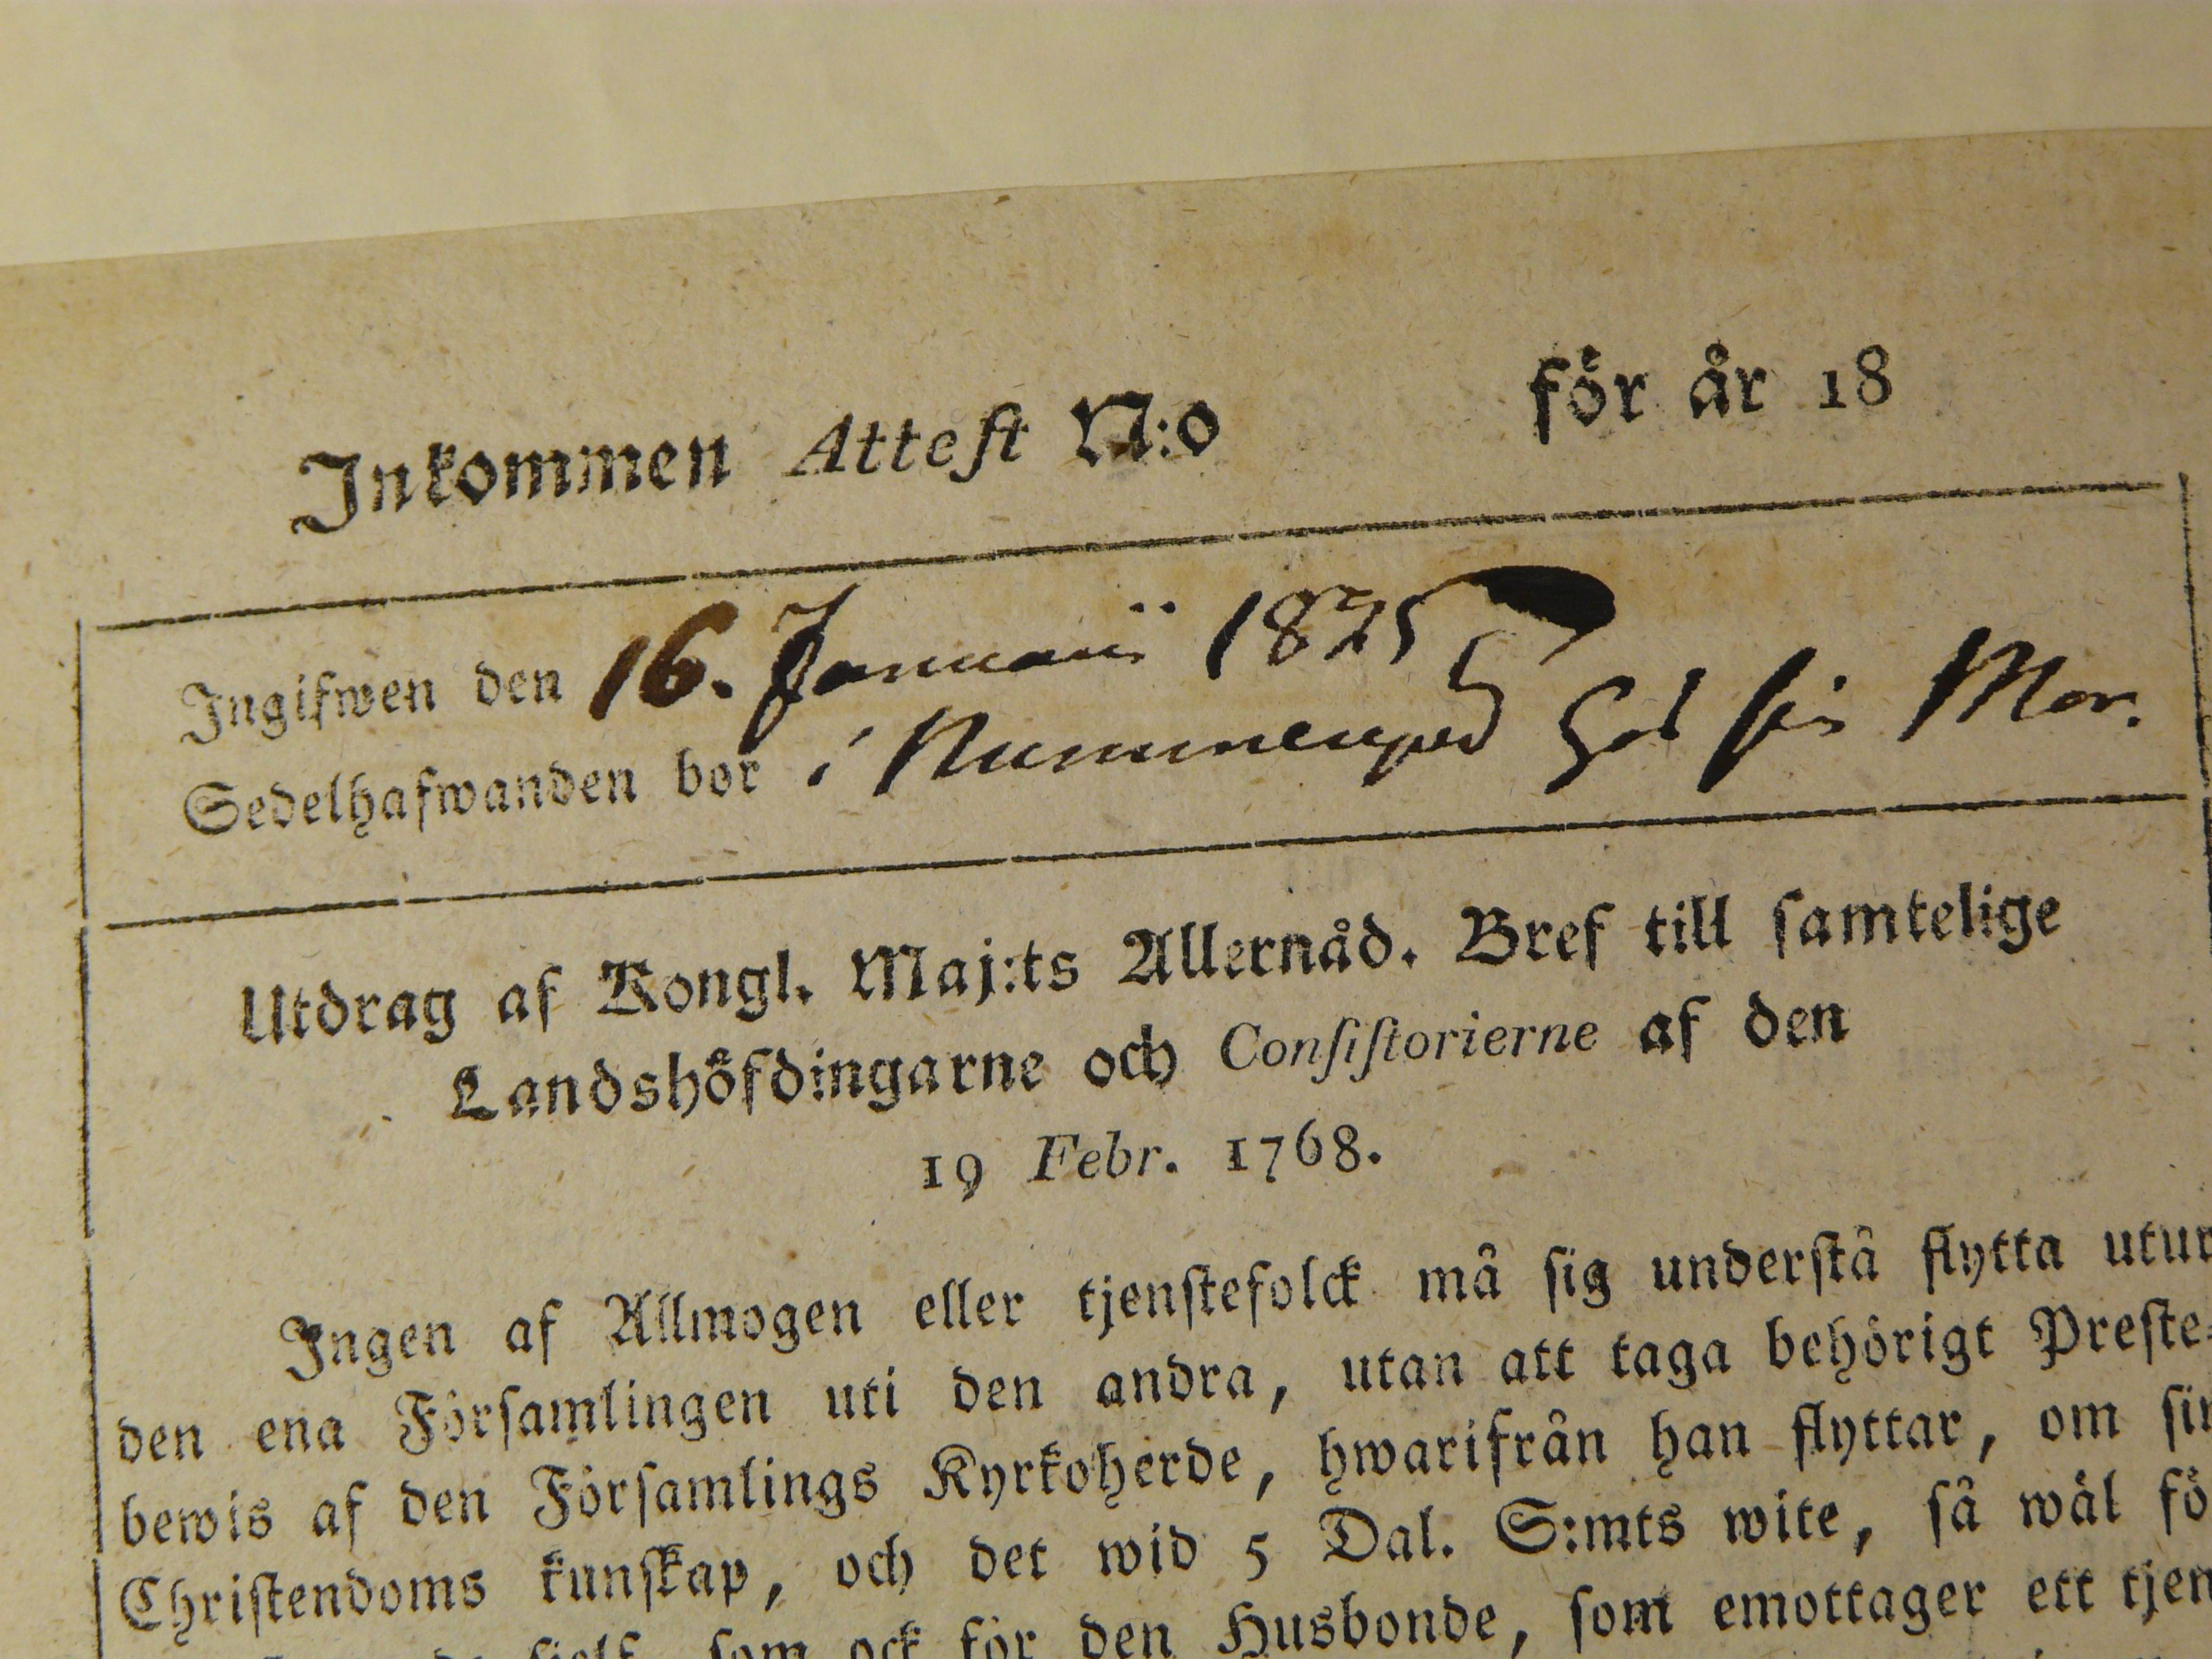 Inkommen Attest N:o för år 18
Ingifwen den 16. Januarii 1825
Sedelhafwanden bor i hos sin Mor.
Utdrag af Kongl. Maj:ts Allernåd. Bref till samtelige
Landshöfdingarne och Consistorierne af den
19 Febr. 1768.
Ingen af Allmogen eller tjenstefolck må sig understå flytta utur
den ena Församlingen uti den andra, utan att taga behörigt Preste-
bewis af den Församlings Kyrkoherde, hwarifrån han flyttar, om sin
Christendoms kunskap, och det wid 5 Dal. S:mts wite, så wäl fö
sielf, som ock för den Husbonde, som emottager ett tjen